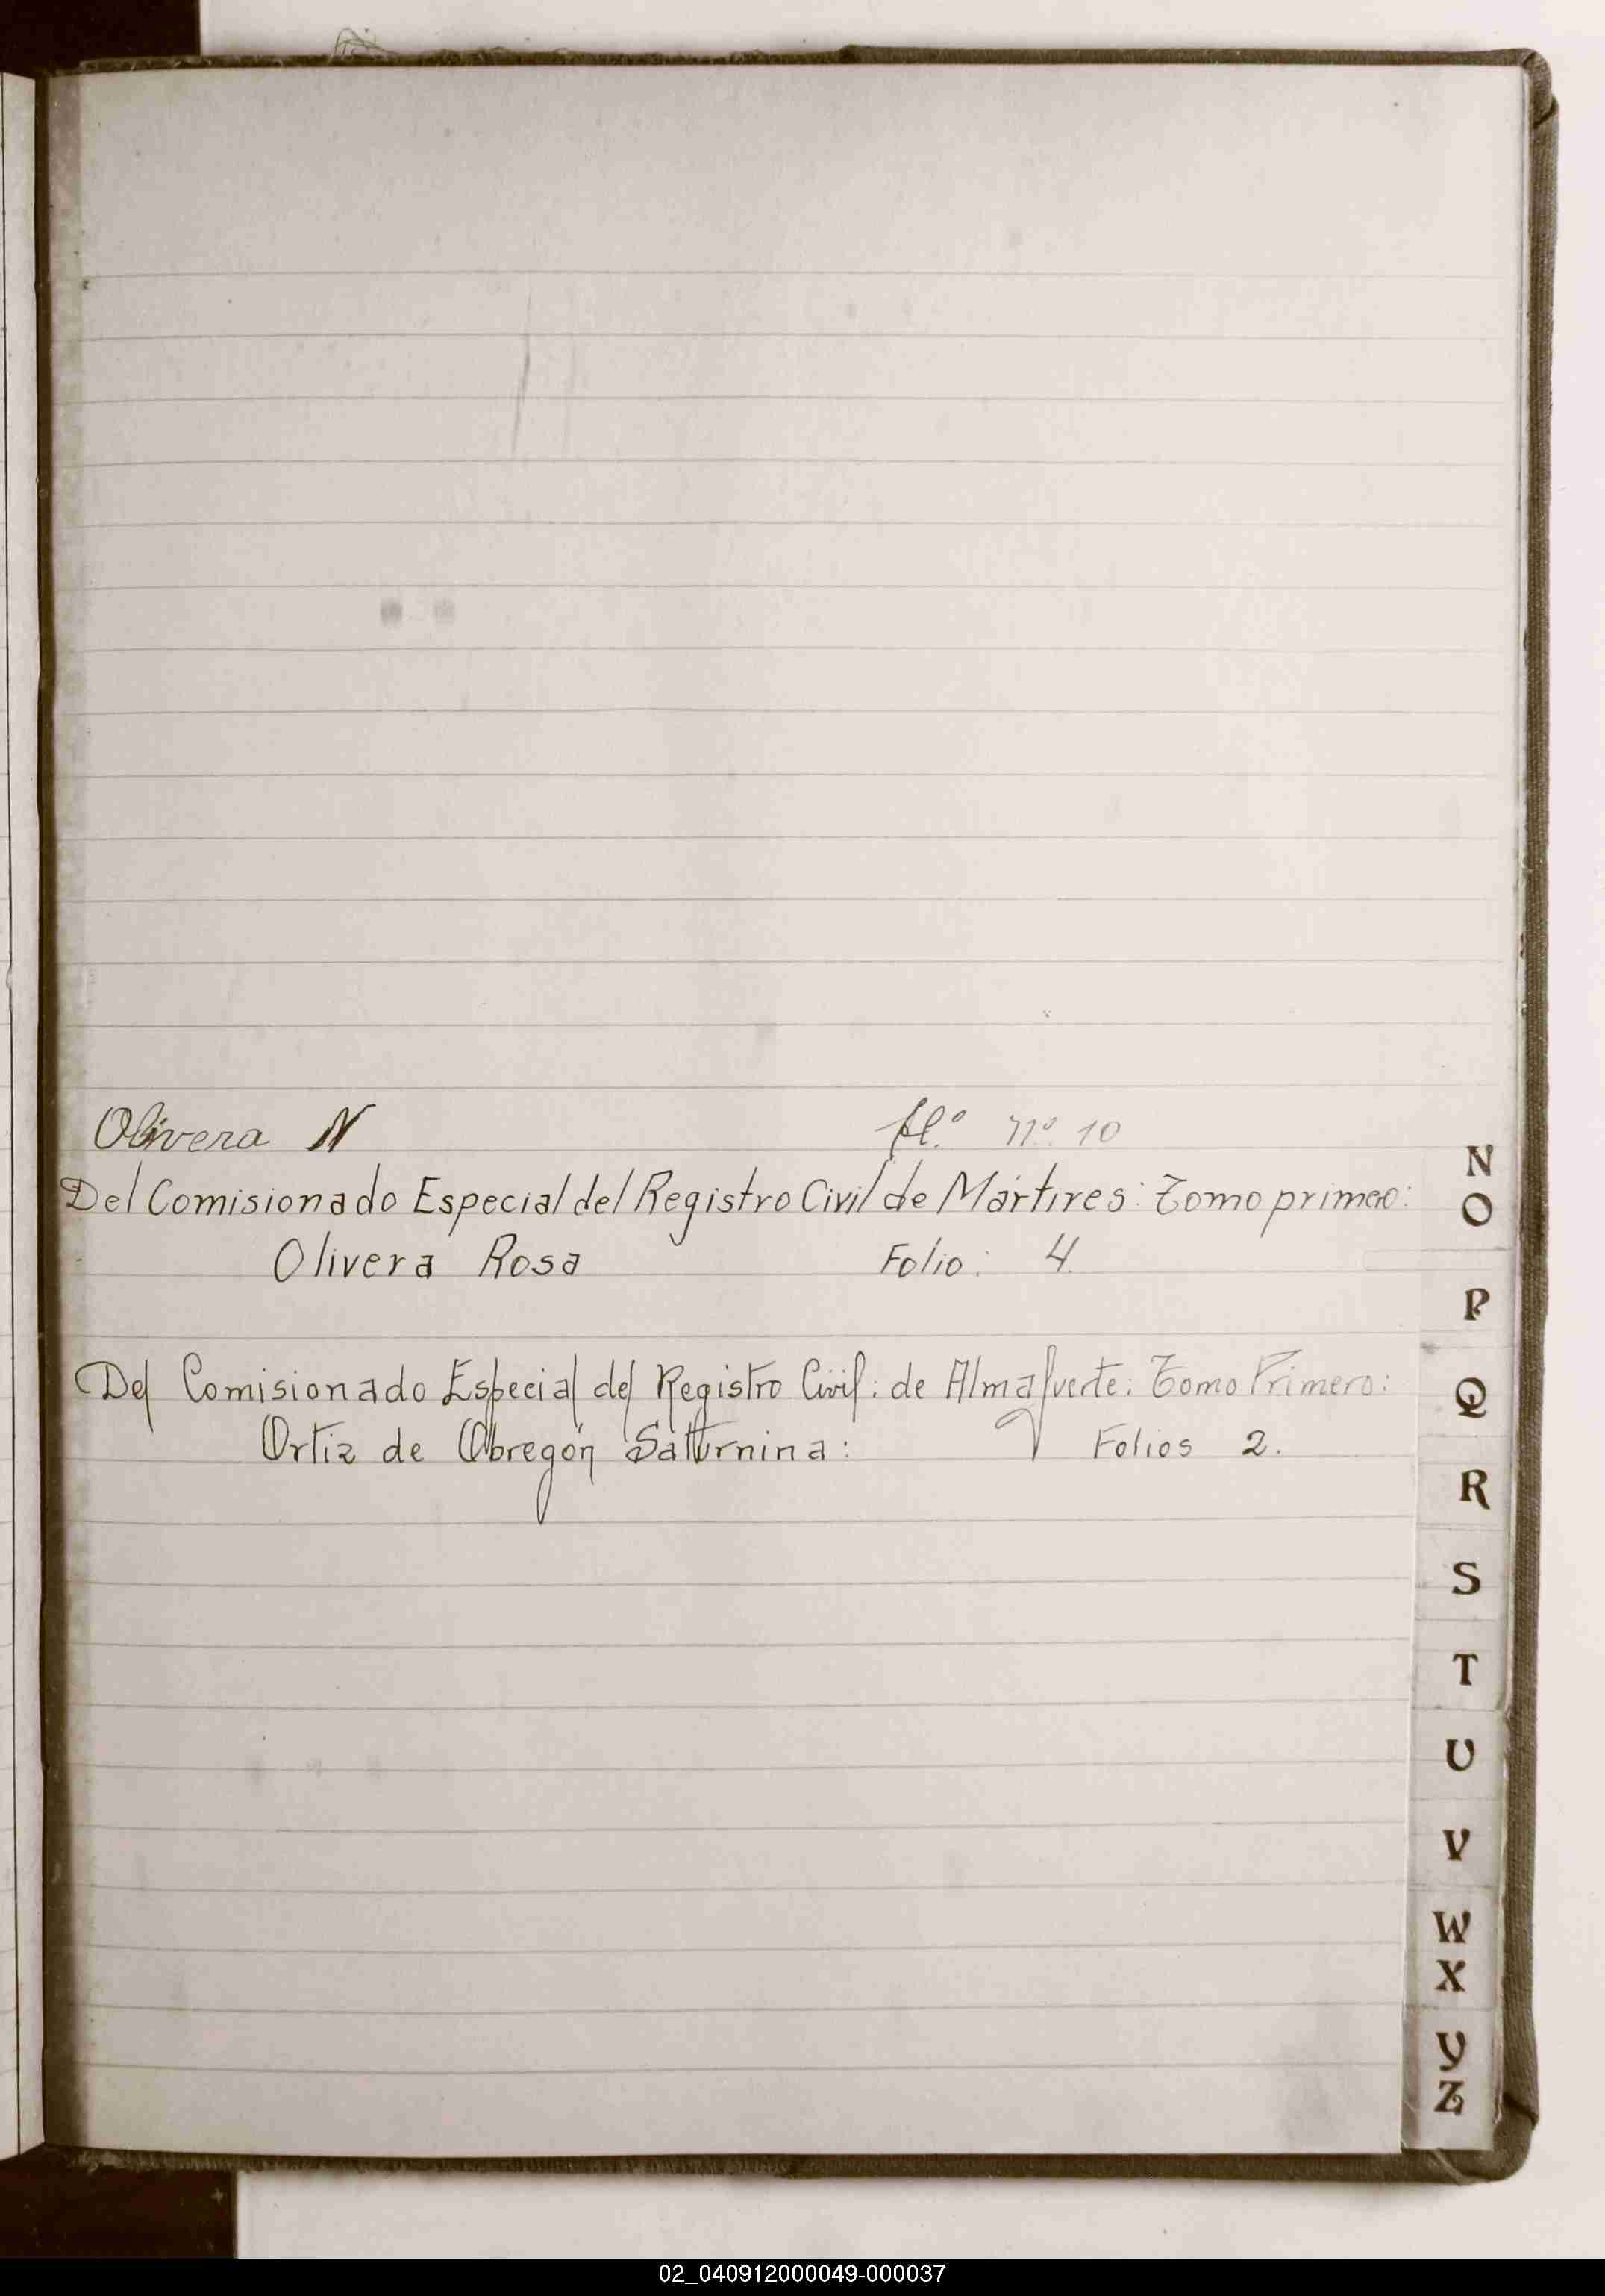 Olivera N fl.º nº 10
Del Comisionado Especial del Registro Civil de Mártires: Tomo primero:
Olivera Rosa Folio: 4.
Del Comisionado Especial del Registro Civil: de Almafuerte: Tomo Primero:
Ortiz de Obregón Saturnina: Folios 2.
N
O
P
Q
R
S
T
U
V
W
X
Y
Z
02_040912000049-000037